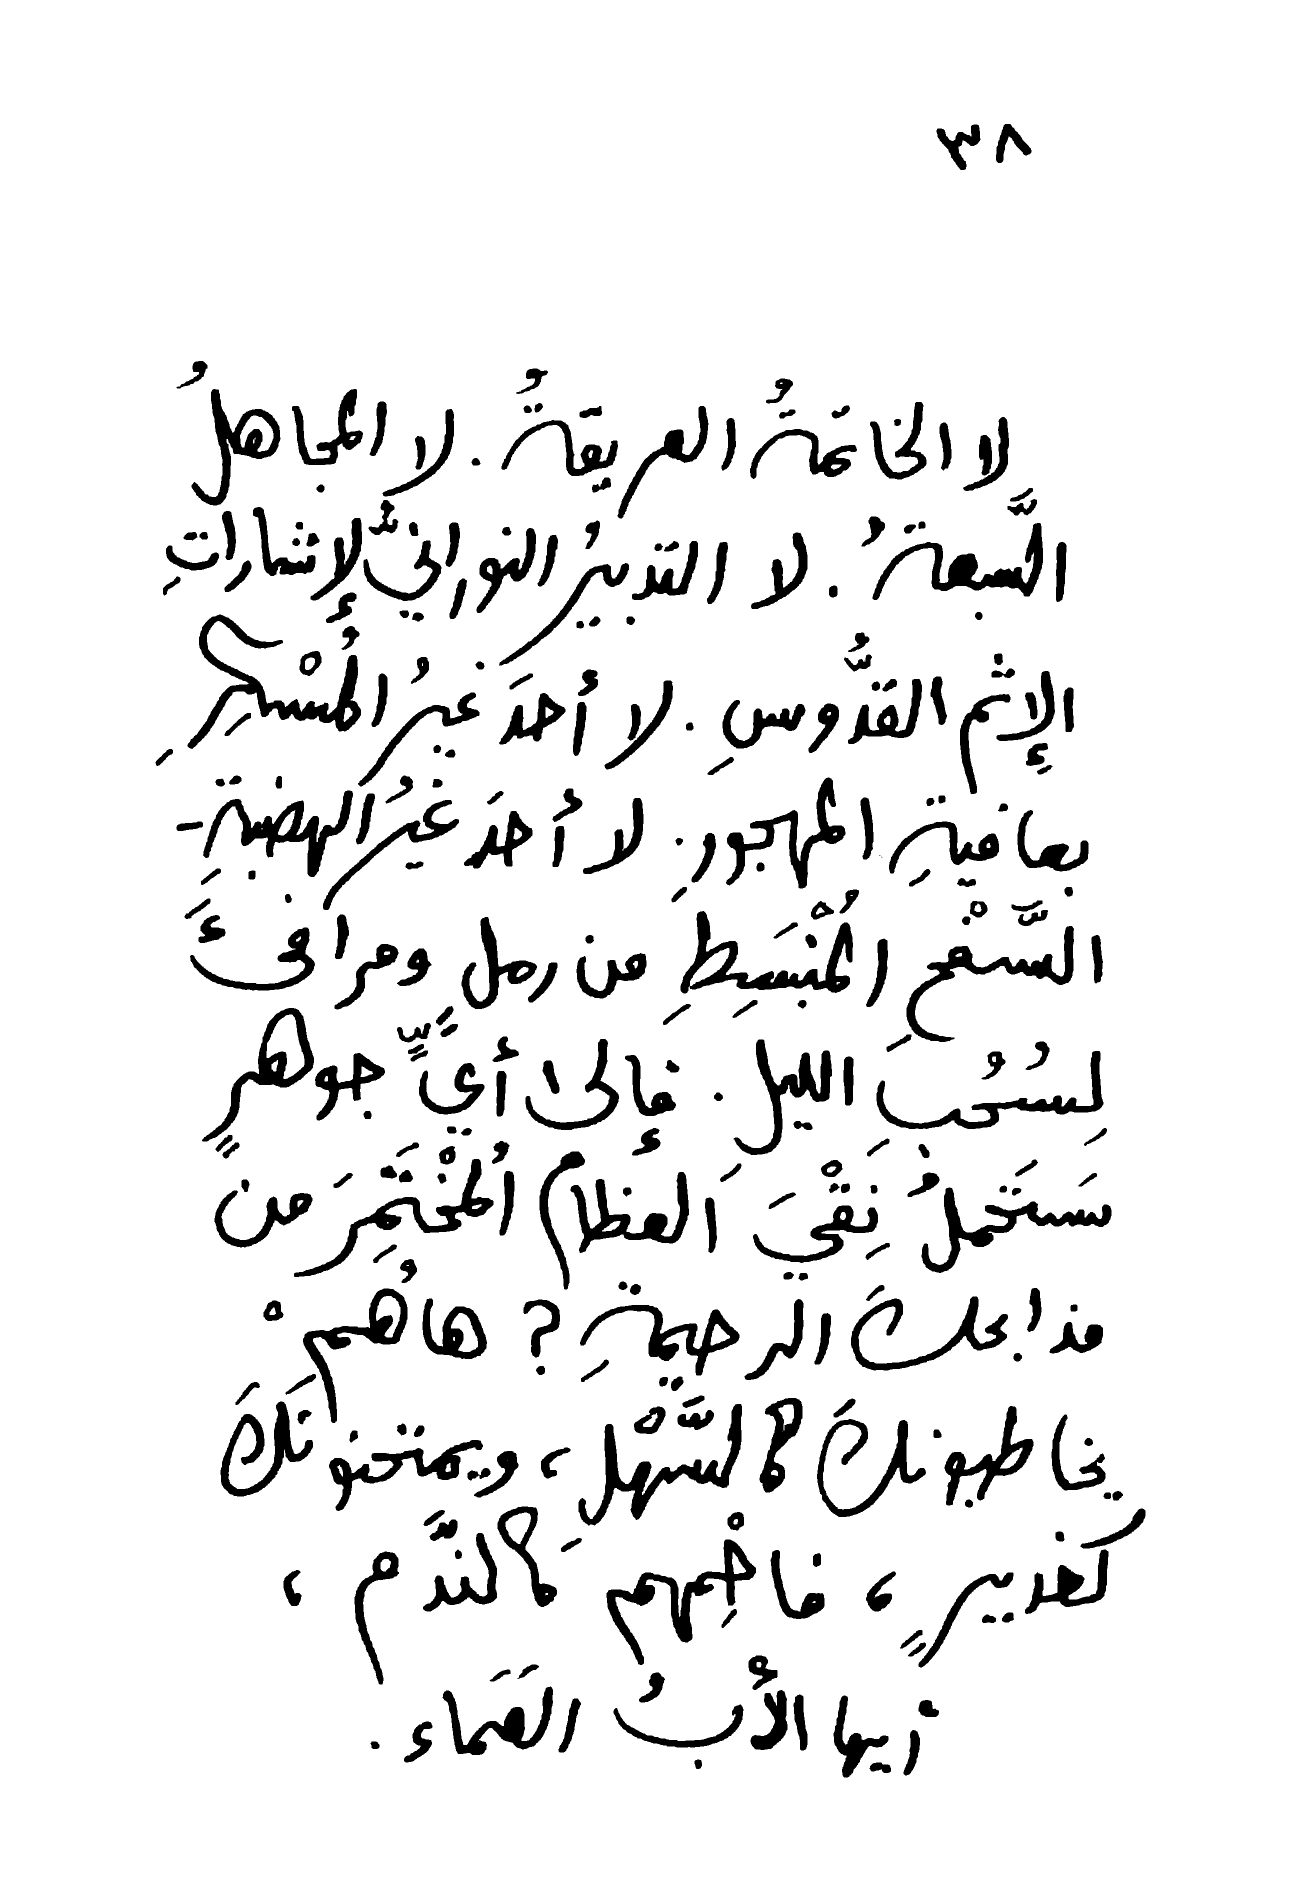 ٣٨
لا الخاتمةُ العريقةُ. لا المجاهلُ
السَّبعةُ. لا التدبيرُ النورانيُّ لإشاراتِ
الإثم القدُّوسِ. لا أحدَ غيرُ المُسْكِرِ
بعافيةِ المهجورِ. لا أحدَ غيرُ الهضبةِ -
السَّفْحِ المُنْبَسِطِ من رمل ومرافئَ
لسُحُبَ الليل. فإلى أيِّ جوهرٍ
سَتَحملُ نِقْيَ العظام المُخْتَمِرَ من
مذابحكَ الرحيمةِ؟ ها هُمْ
يخاطبونكَ كالسَّهْلِ، ويمتحنونَكَ
كغديرٍ، فاحْمِهم كالندَّم،
أيها الأبُ العَمَاء.